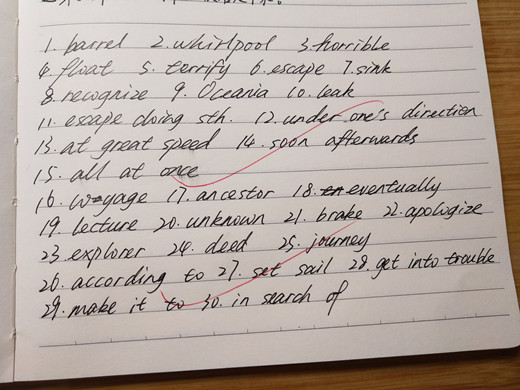 1. barrel 2. whirlpool 3. horrible
4. float 5. terrify 6. escape 7. sink
8. recognize 9. Oceania 10. leak
11. escape doing sth. 12. under one's direction
13. at great speed 14. soon afterwards
15. all at once
16. voyage 17. ancestor 18. eventually
19. lecture 20. unknown 21. brake 22. apologize
23. explorer 24. deed 25. journey
26. according to 27. set sail 28. get into trouble
29. make it to 30. in search of